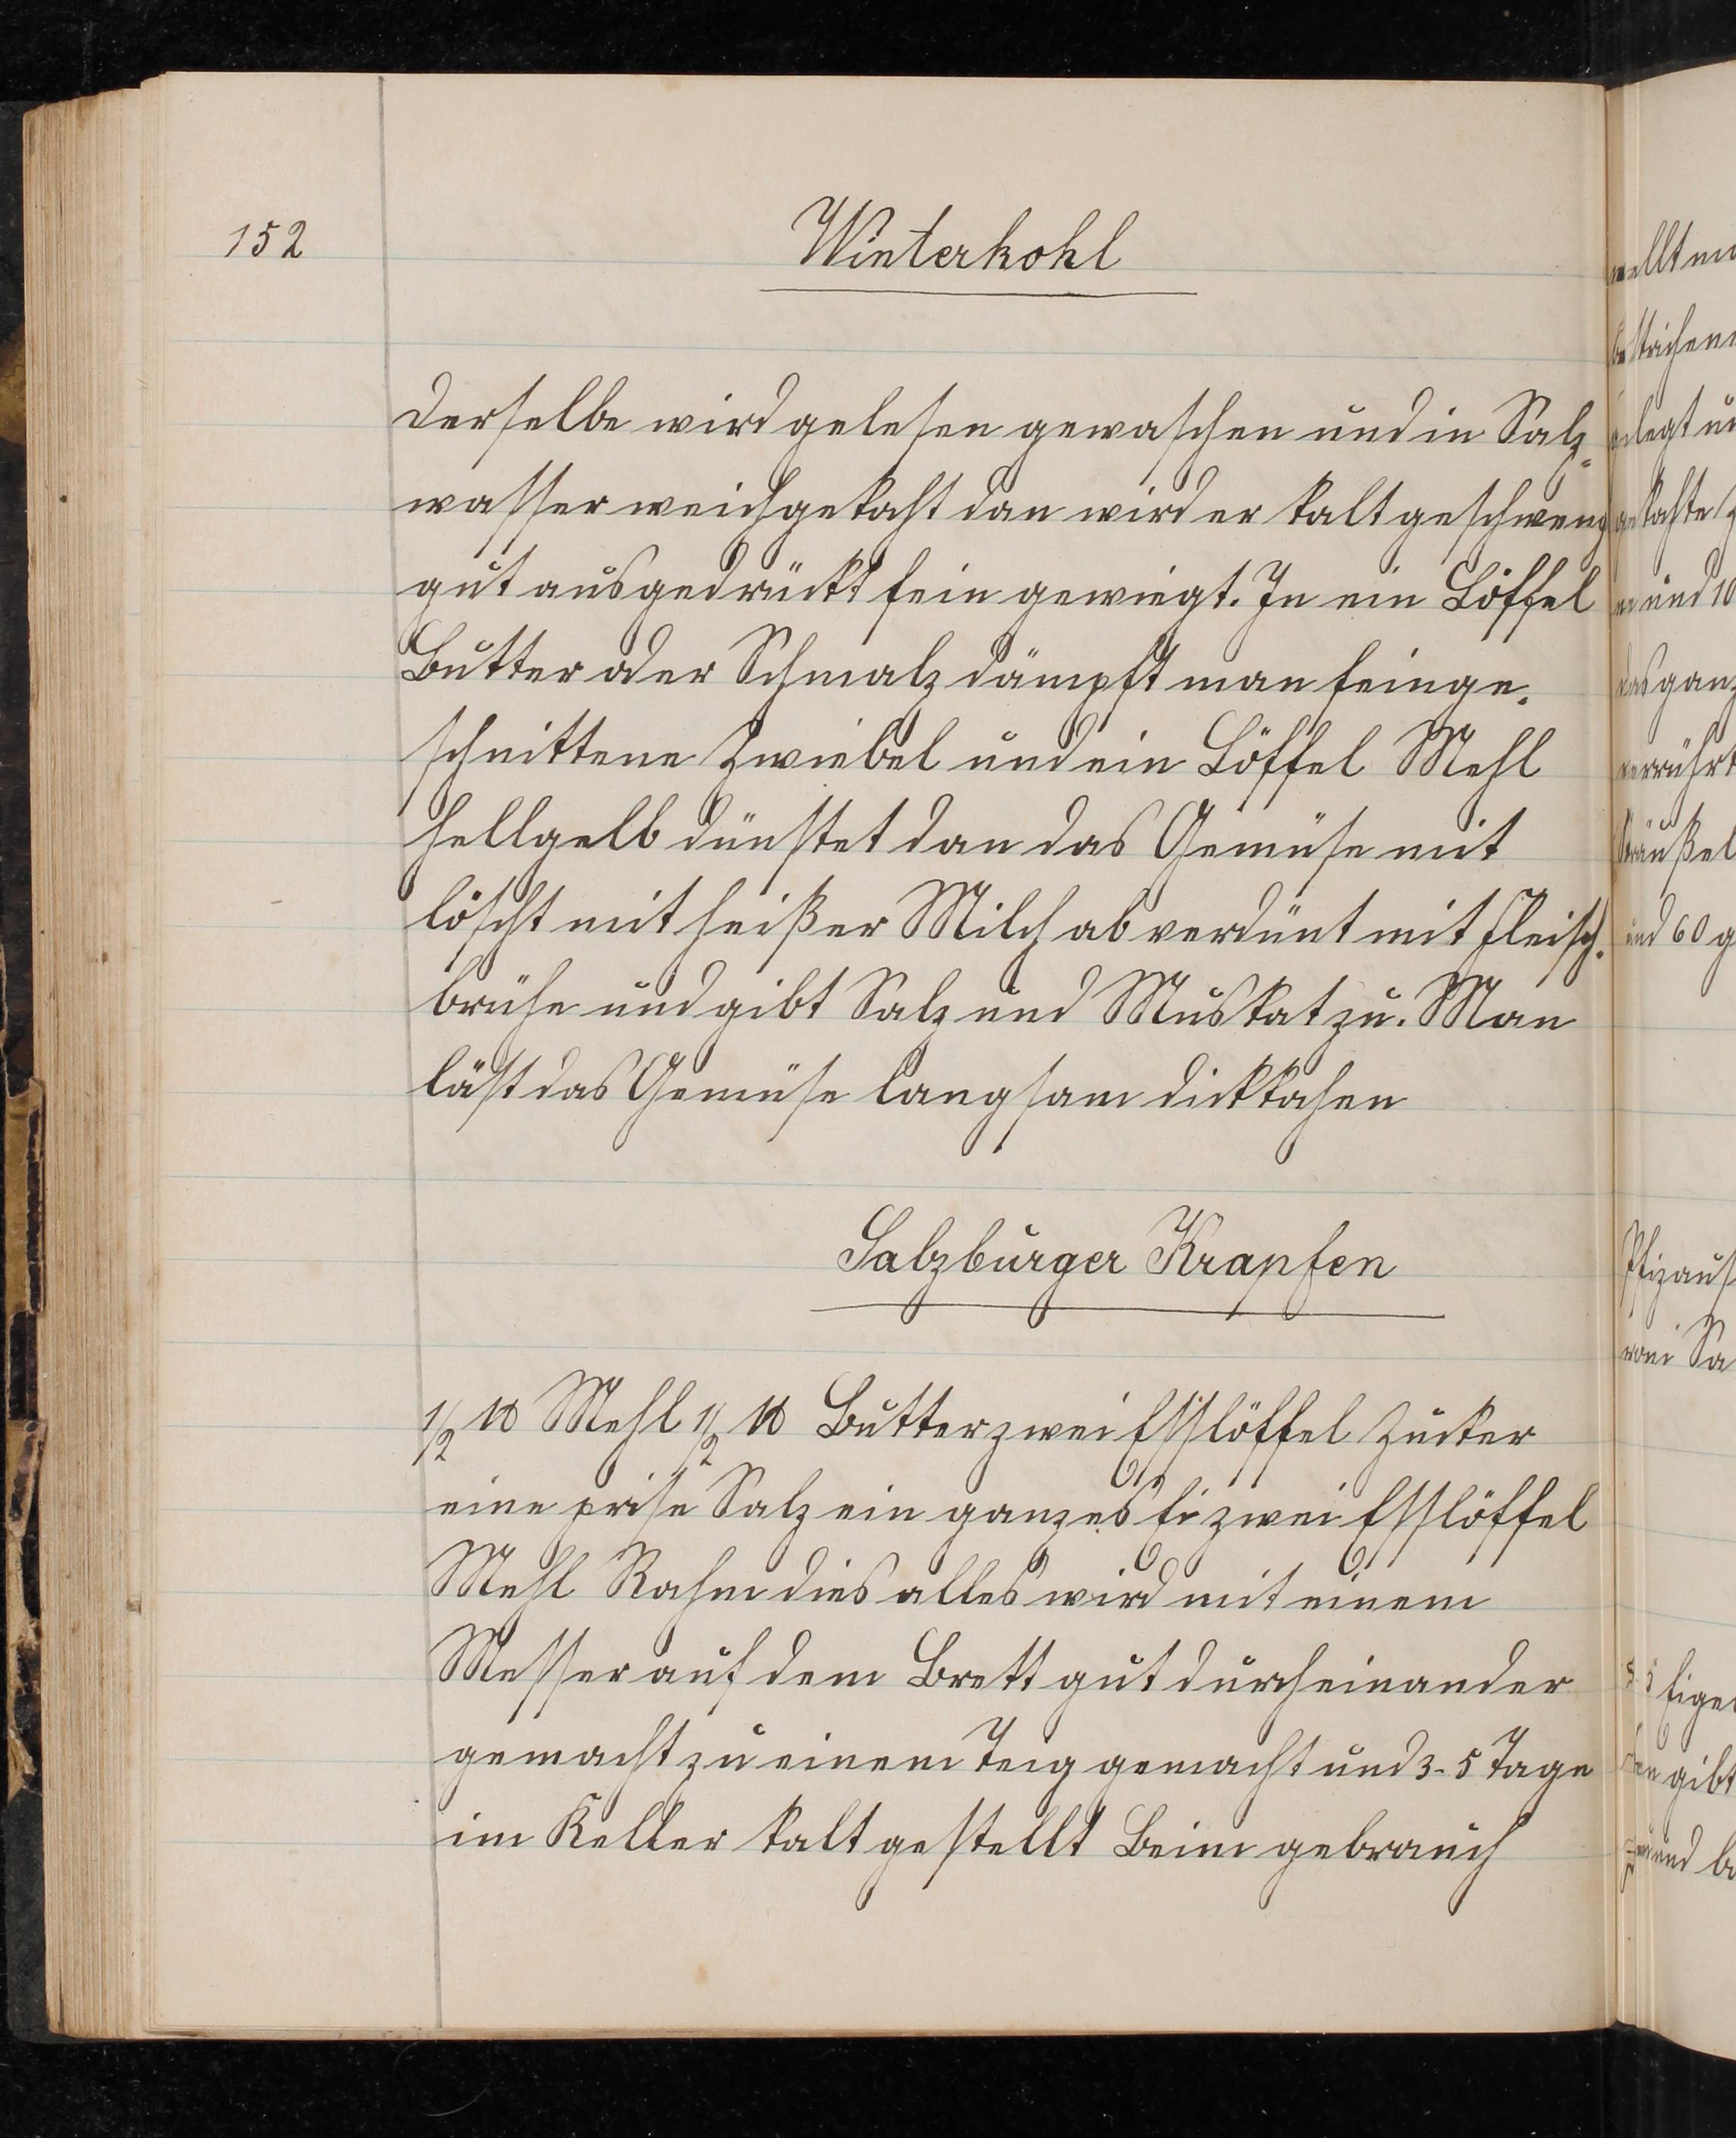 152
Winterkohl
derselbe wird gelesen gewaschen und in Salz-
wasser weichgekocht dan wird er kalt geschwenz
gut ausgedrückt fein gewiegt. In ein Löffel
Butter oder Schmalz dämpft man feinge-
schnittene Zwiebel und ein Löffel Mehl
hellgelb dünstet dan das Gemüse mit
löscht mit heißer Milch ab verdünt mit Fleisch-
brühe und gibt Salz und Muskat zu. Man
läst das Gemüse langsam dickkochen
Salzburger Krapfen
1/2 ℔ Mehl 1/2 ℔ Butter zwei Esslöffel Zucker
eine prise Salz ein ganzes Ei zwei Esslöffel
Mehl Rahm dies alles wird mit einem
Messer auf dem Brett gut durcheinander
gemacht zu einem Teig gemacht und 3-5 Tage
im Keller kalt gestellt Beim gebrauch